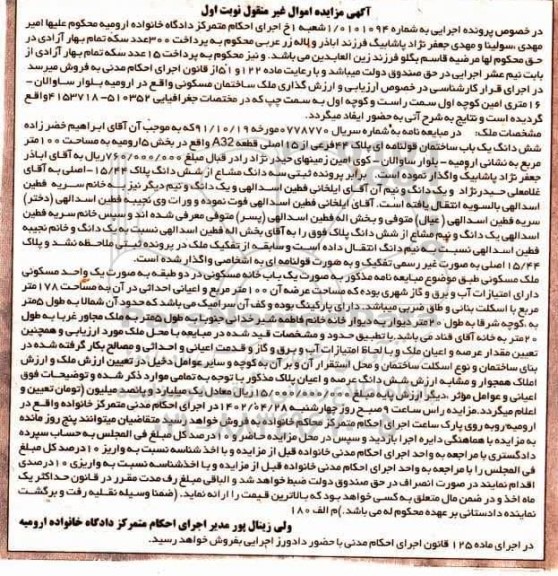 آگهی مزایده اموال غیر منقول نوبت اول
در خصوص پرونده اجرایی به شماره ۱/۰۱۰۱۰۹۴ شعبه ۱ خ اجرای احکام متمرکز دادگاه خانواده ارومیه محکوم علیها امیر
مهدی ،سولینا و مهدی جعفر نژاد پاشابیگ فرزند اباذر و لاله زر عربی محکوم به پرداخت ۳۰۰ عدد سکه تمام بهار آزادی در
حق محکوم لها مرضیه قاسم بگلو فرزند زین العابدین می باشد. و نیز محکوم به پرداخت ۱۵ عدد سکه تمام بهار آزادی از
بابت نیم عشر اجرایی در حق صندوق دولت میباشد و با رعایت ماده ۱۲۲ و ۵۱ از قانون اجرای احکام مدنی به فروش میرسد
در اجرای قرار کارشناسی در خصوص ارزیابی و ارزش گذاری ملک ساختمان مسکونی واقع در ارومیه بلوار ساوالان -
۱۶ متری امین کوچه اول سمت راست و کوچه اول به سمت چپ که در مختصات جغرافیایی ۵۱۰۳۵۲-۴۱۵۳۷۱۸ واقع
گردیده است و نتایج به شرح آتی به حضور ایفاد میگردد.
مشخصات ملک: در مبایعه نامه به شماره سریال ۰۷۷۸۷۷۰ مورخه ۹۱/۱۰/۱۹ که به موجب آن آقای ابراهیم خضر زاده
شش دانگ یک باب ساختمان قولنامه ای پلاک ۴۲ فرعی از ۱۵ اصلی قطعه A32 واقع در بخش ۵ ارومیه به مساحت ۱۰۰ متر
مربع به نشانی ارومیه - بلوار ساوالان - کوی امین زمینهای حیدر نژاد را در قبال مبلغ ۷۶۰/۰۰۰/۰۰۰ ریال به آقای اباذر
جعفر نژاد پاشابیگ واگذار نموده است. برابر پرونده ثبتی سه دانگ مشاع از شش دانگ پلاک ۱۵/۴۴- اصلی به آقای
غلامعلی حیدر نژاد و یک دانگ و نیم آن آقای ایلخانی فطین اسدالهی و یک دانگ و نیم دیگر نیز به خانم سریه فطین
اسدالهی بالسویه انتقال یافته است. آقای ایلخانی فطین اسدالهی فوت نموده و وراث وی نجیبه فطین اسدالهی (دختر)
سریه فطین اسدالهی (عیال) متوفی و بخش اله فطین اسدالهی (پسر) متوفی معرفی شده اند و سپس خانم سریه فطین
اسدالهی یک دانگ و نیم مشاع از شش دانگ پلاک فوق را به آقای بخش اله فطین اسدالهی نسبت به یک دانگ و خانم نجیبه
فطین اسدالهی نسبت به نیم دانگ انتقال داده است و سابقه از تفکیک ملک در پرونده ثبتی ملاحظه نشد و پلاک
۱۵/۴۴ اصلی به صورت غیر رسمی تفکیک و به صورت قولنامه ای به اشخاصی واگذار شده است.
ملک مسکونی طبق موضوع مبایعه نامه مذکور به صورت یک باب خانه مسکونی در دو طبقه به صورت یک واحد مسکونی
دارای امتیازات آب و برق و گاز شهری بوده که مساحت عرصه آن ۱۰۰ متر مربع و اعیانی احداثی در آن به مساحت ۱۷۸ متر
مربع با اسکلت بنائی و طاق ضربی میباشد. دارای پارکینگ بوده و کف آن سرامیک می باشد که حدود آن شمالا به طول ۵ متر
به ،کوچه شرقا به طول ۲۰ متر دیوار به دیوار خانه خانم فاطمه شیر خدائی جنوبا به طول ۵ متر به ملک مجاور غربا به طول
۲۰ متر به خانه آقای قناد می باشد. با تطبیق حدود و مشخصات قید شده در مبایعه با محل ملک مورد ارزیابی و همچنین
تعیین مقدار عرصه و اعیان ملک و با لحاظ امتیازات آب و برق و گاز و قدمت اعیانی و احداثی و مصالح بکار گرفته شده در
بنای ساختمان و نوع اسکلت ساختمان و محل استقرار آن و بر آن به کوچه و سایر عوامل دخیل در تعیین ارزش ملک و ارزش
املاک همجوار و مشابه ارزش شش دانگ عرصه و اعیان پلاک مذکور با توجه به تمامی موارد ذکر شده و توضیحات فوق
اعیانی و عوامل مؤثر ،دیگر ارزش پایه مبلغ ریال معادل یک میلیارد و پانصد میلیون (تومان تعیین و
اعلام میگردد. مزایده راس ساعت ۹ صبح روز چهارشنبه ۱۴۰۲/۰۴/۲۸ در اجرای احکام مدنی متمرکز خانواده واقع در
ارومیه روبه روی پارک ساعت اجرای احکام متمرکز مدنی خانواده به فروش خواهد رسید. متقاضیان میتوانند پنج روز مانده
به مزایده با هماهنگی دایره اجرا بازدید و سپس در محل مزایده حاضر و ۱۰ درصد کل مبلغ فی المجلس به حساب سپرده
دادگستری با مراجعه به واحد اجرای احکام مدنی خانواده قبل از مزایده و با اخذ شناسه نسبت به واریز ۱۰ درصد کل مبلغ
فی المجلس را با مراجعه به واحد اجرای احکام مدنی خانواده قبل از مزایده و با اخذ شناسه نسبت به واریزی ۱۰ درصدی
اقدام نمایند در صورت انصراف در حق صندوق دولت ضبط خواهد شد و الباقی مبلغ رف مدت مقرر در قانون حداکثر یک
ماه اخذ و در ضمن مال متعلق به کسی خواهد بود که بالاترین قیمت را ارائه نماید. (ضمنا وسیله نقلیه رفت و برگشت
نماینده دادستانی بر عهده محکوم له می باشد.) م الف ۱۸۰
ولی زینال پور مدیر اجرای احکام متمرکز دادگاه خانواده ارومیه
در اجرای ماده ۱۲۵ قانون اجرای احکام مدنی با حضور دادورز اجرایی بفروش خواهد رسید.